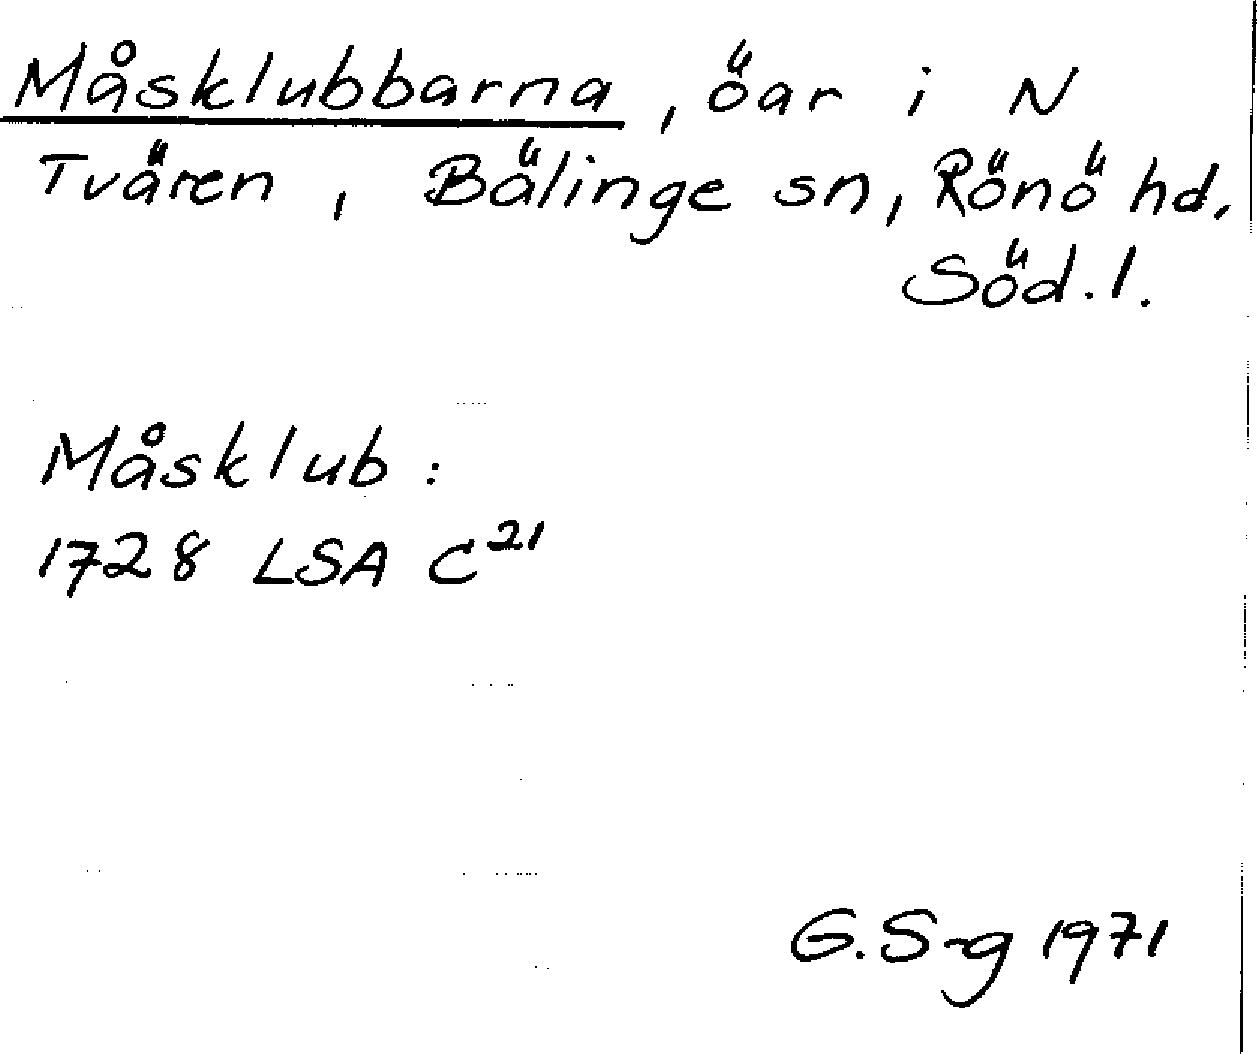 Måsklubbarna, öar i N
Tvären, Bälinge sn, Rönö hd,
Söd.l.
Måsklub:
1728 LSA C²¹
G.S-g 1971